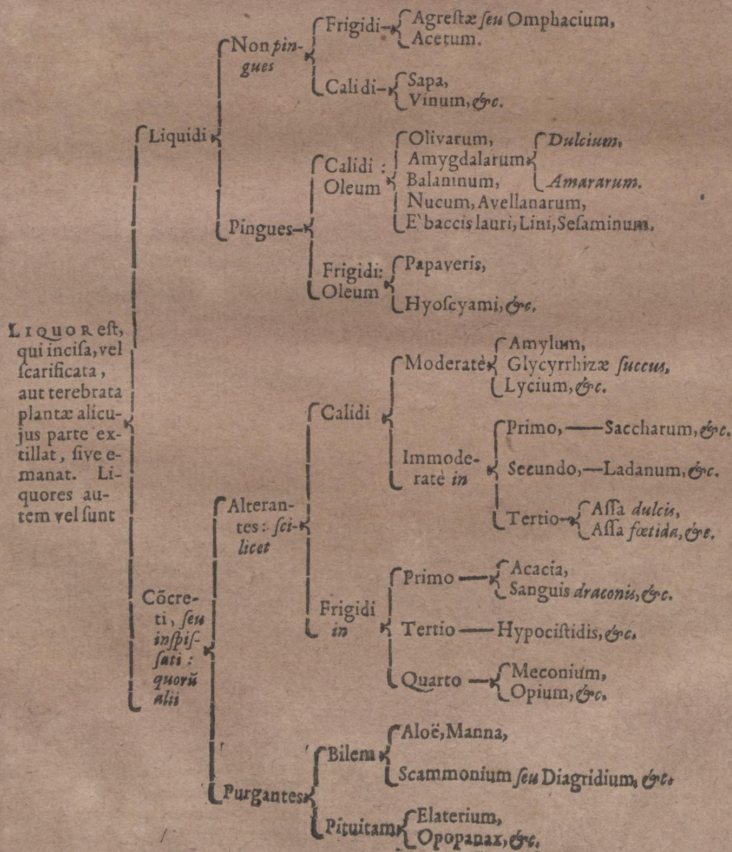 LIQUOR eſt,
qui inciſa, vel
ſcarificata,
aut terebrata
plantæ alicu-
jus parte ex-
tillat, ſive e-
manat. Li-
quores au-
tem vel ſunt
Liquidi
Non pin-
gues
Frigidi
Agreſtæ ſeu Omphacium,
Acetum.
Calidi
Sapa,
Vinum, &c.
Pingues
Calidi :
Oleum
Olivarum,
Amygdalarum
Dulcium,
Amararum.
Balaninum,
Nucum, Avellanarum,
E`baccis lauri, Lini, Seſaminum.
Frigidi:
Oleum
Papaveris,
Hyoſcyami, &c.
Cōcre-
ti, ſeu
inſpiſ-
ſati :
quorū
alii
Alteran-
tes: ſci-
licet
Calidi
Moderatè
Amylum,
Glycyrrhizæ ſuccus,
Lycium, &c.
Immode-
ratè in
Primo, Saccharum, &c.
Secundo, Ladanum, &c.
Tertio
Aſſa dulcis,
Aſſa fœtida, &c.
Frigidi
in
Primo
Acacia,
Sanguis draconis, &c.
Tertio Hypociſtidis, &c.
Quarto
Meconium,
Opium, &c.
Purgantes
Bilem
Aloë, Manna,
Scammonium ſeu Diagridium, &c.
Pituitam
Elaterium,
Opopanax, &c.